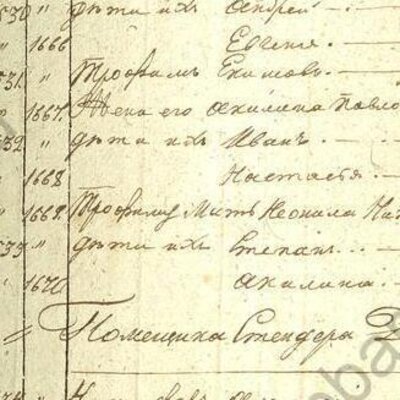 530 " дѣти ихъ Андрей. —
" 1666 Евгенія. —
531. " Трофимъ Екимовъ. —
" 1667. Жена его Акилина Павло
532. " дѣти ихъ Иванъ. —
" 1668 Настасья. —
" 1669. Трофиму мать Неонила
533 " дѣти ихъ Степанъ. —
" 1670 Акилина. —
Помещика Стендера